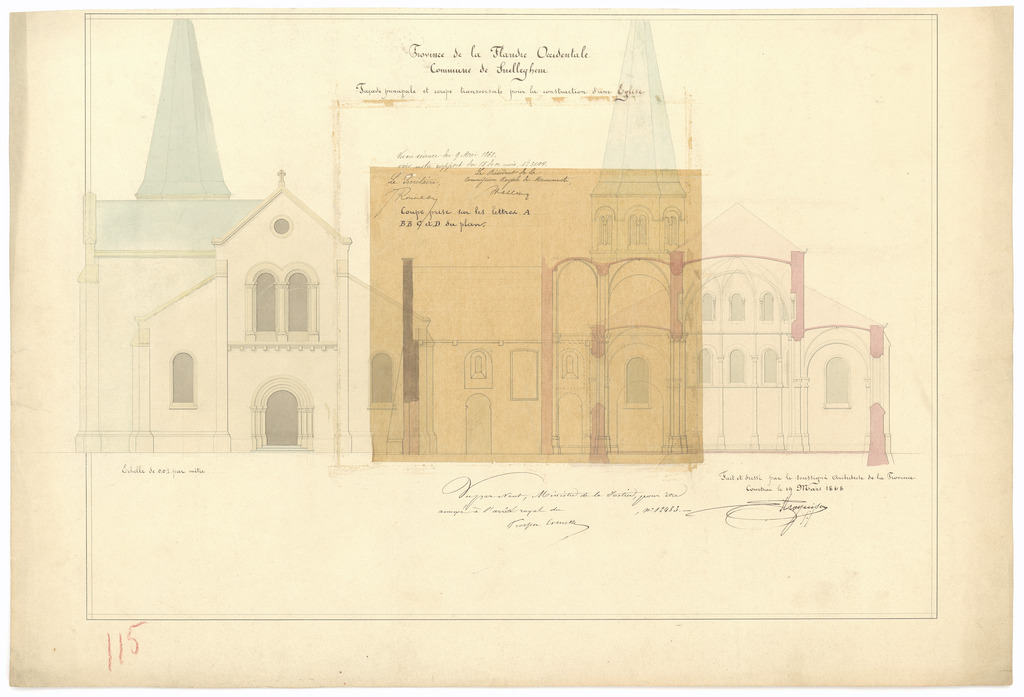 Province de la Flandre Occidentale
Commune de Snelleghem
Façade principale et coupe transversale pour la construction d'une Eglise
Vu en séance du 9 Mai 1868.
voir notre rapport du 18 de ce mois,
Le Secrétaire,
Le Président de la
Commission Royale des Monuments,
Rousseau
Coupe prise sur les lettres A
BB C et D du plan.
Echelle de 0.01 par mètre
Fait et dressé par le soussigné Architecte de la Province
Courtrai le 19 Mars 1868
Vu par Nous, Ministre de la Justice, pour être
annexé à l'arrêté royal du
, N° 12483.
115